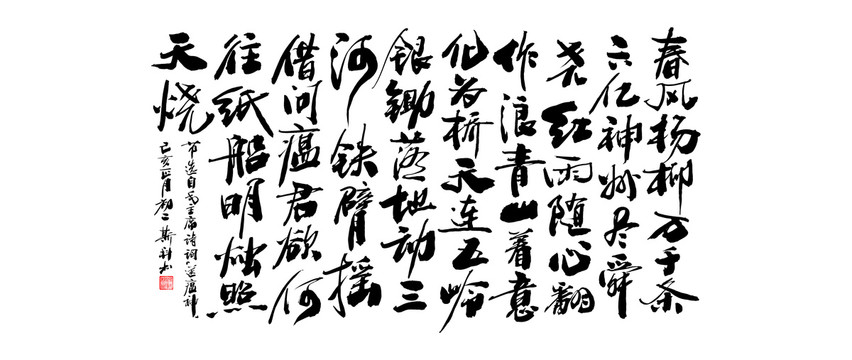 春风杨柳万千条
六亿神州尽舜
尧红雨随心翻
作浪青山着意
化为桥天连五岭
银锄落地动三
河铁臂摇
借问瘟君欲何
往纸船明烛照
天烧
节选自毛主席诗词《送瘟神》
己亥正月初二